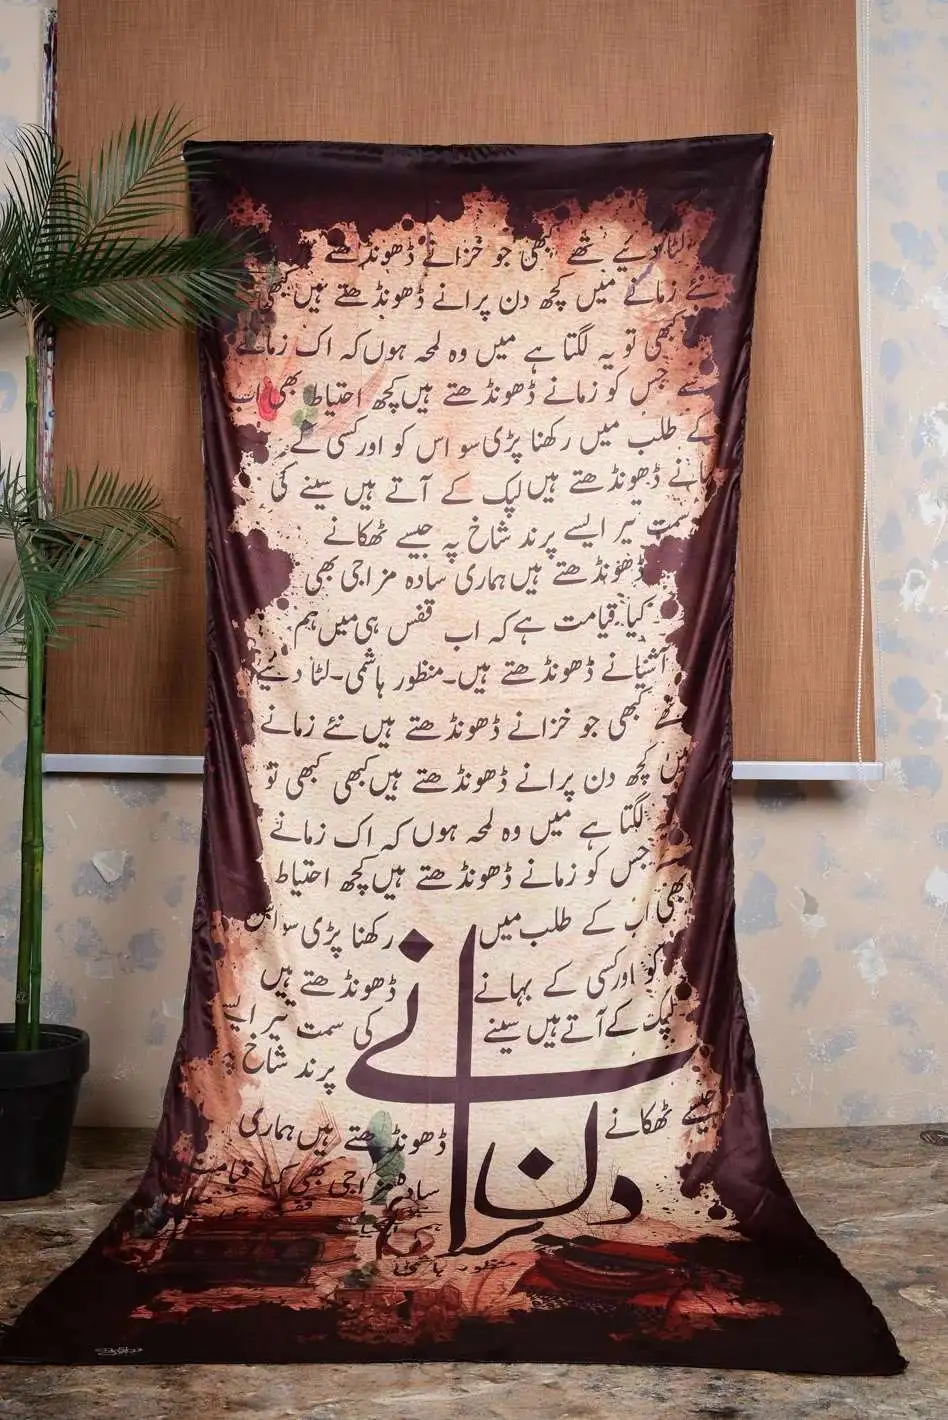 لٹا دیئے تھے کبھی جو خزانے ڈھونڈھتے
نئے زمانے میں کچھ دن پرانے ڈھونڈھتے ہیں کبھی
کبھی تو یہ لگتا ہے میں وہ لمحہ ہوں کہ اک زمانے
سے جس کو زمانے ڈھونڈھتے ہیں کچھ احتیاط بھی اب
کے طلب میں رکھنا پڑی سو اس کو اور کسی کے
بہانے ڈھونڈھتے ہیں لپک کے آتے ہیں سینے کی
سمت تیر ایسے پرند شاخ پہ جیسے ٹھکانے
ڈھونڈھتے ہیں ہماری سادہ مزاجی بھی
کیا قیامت ہے کہ اب قفس ہی میں ہم
آشیانے ڈھونڈھتے ہیں۔منظور ہاشمی۔لٹا دیئے
تھے کبھی جو خزانے ڈھونڈھتے ہیں نئے زمانے
میں کچھ دن پرانے ڈھونڈھتے ہیں کبھی کبھی تو
لگتا ہے میں وہ لمحہ ہوں کہ اک زمانے
سے جس کو زمانے ڈھونڈھتے ہیں کچھ احتیاط
بھی اب کے طلب میں رکھنا پڑی سو اس
کو اور کسی کے بہانے ڈھونڈھتے ہیں
لپک کے آتے ہیں سینے کی سمت تیر ایسے
پرند شاخ پہ
جیسے ٹھکانے ڈھونڈھتے ہیں ہماری
سادہ مزاجی بھی کیا قیامت
دن پرانے
منظور ہاشمی